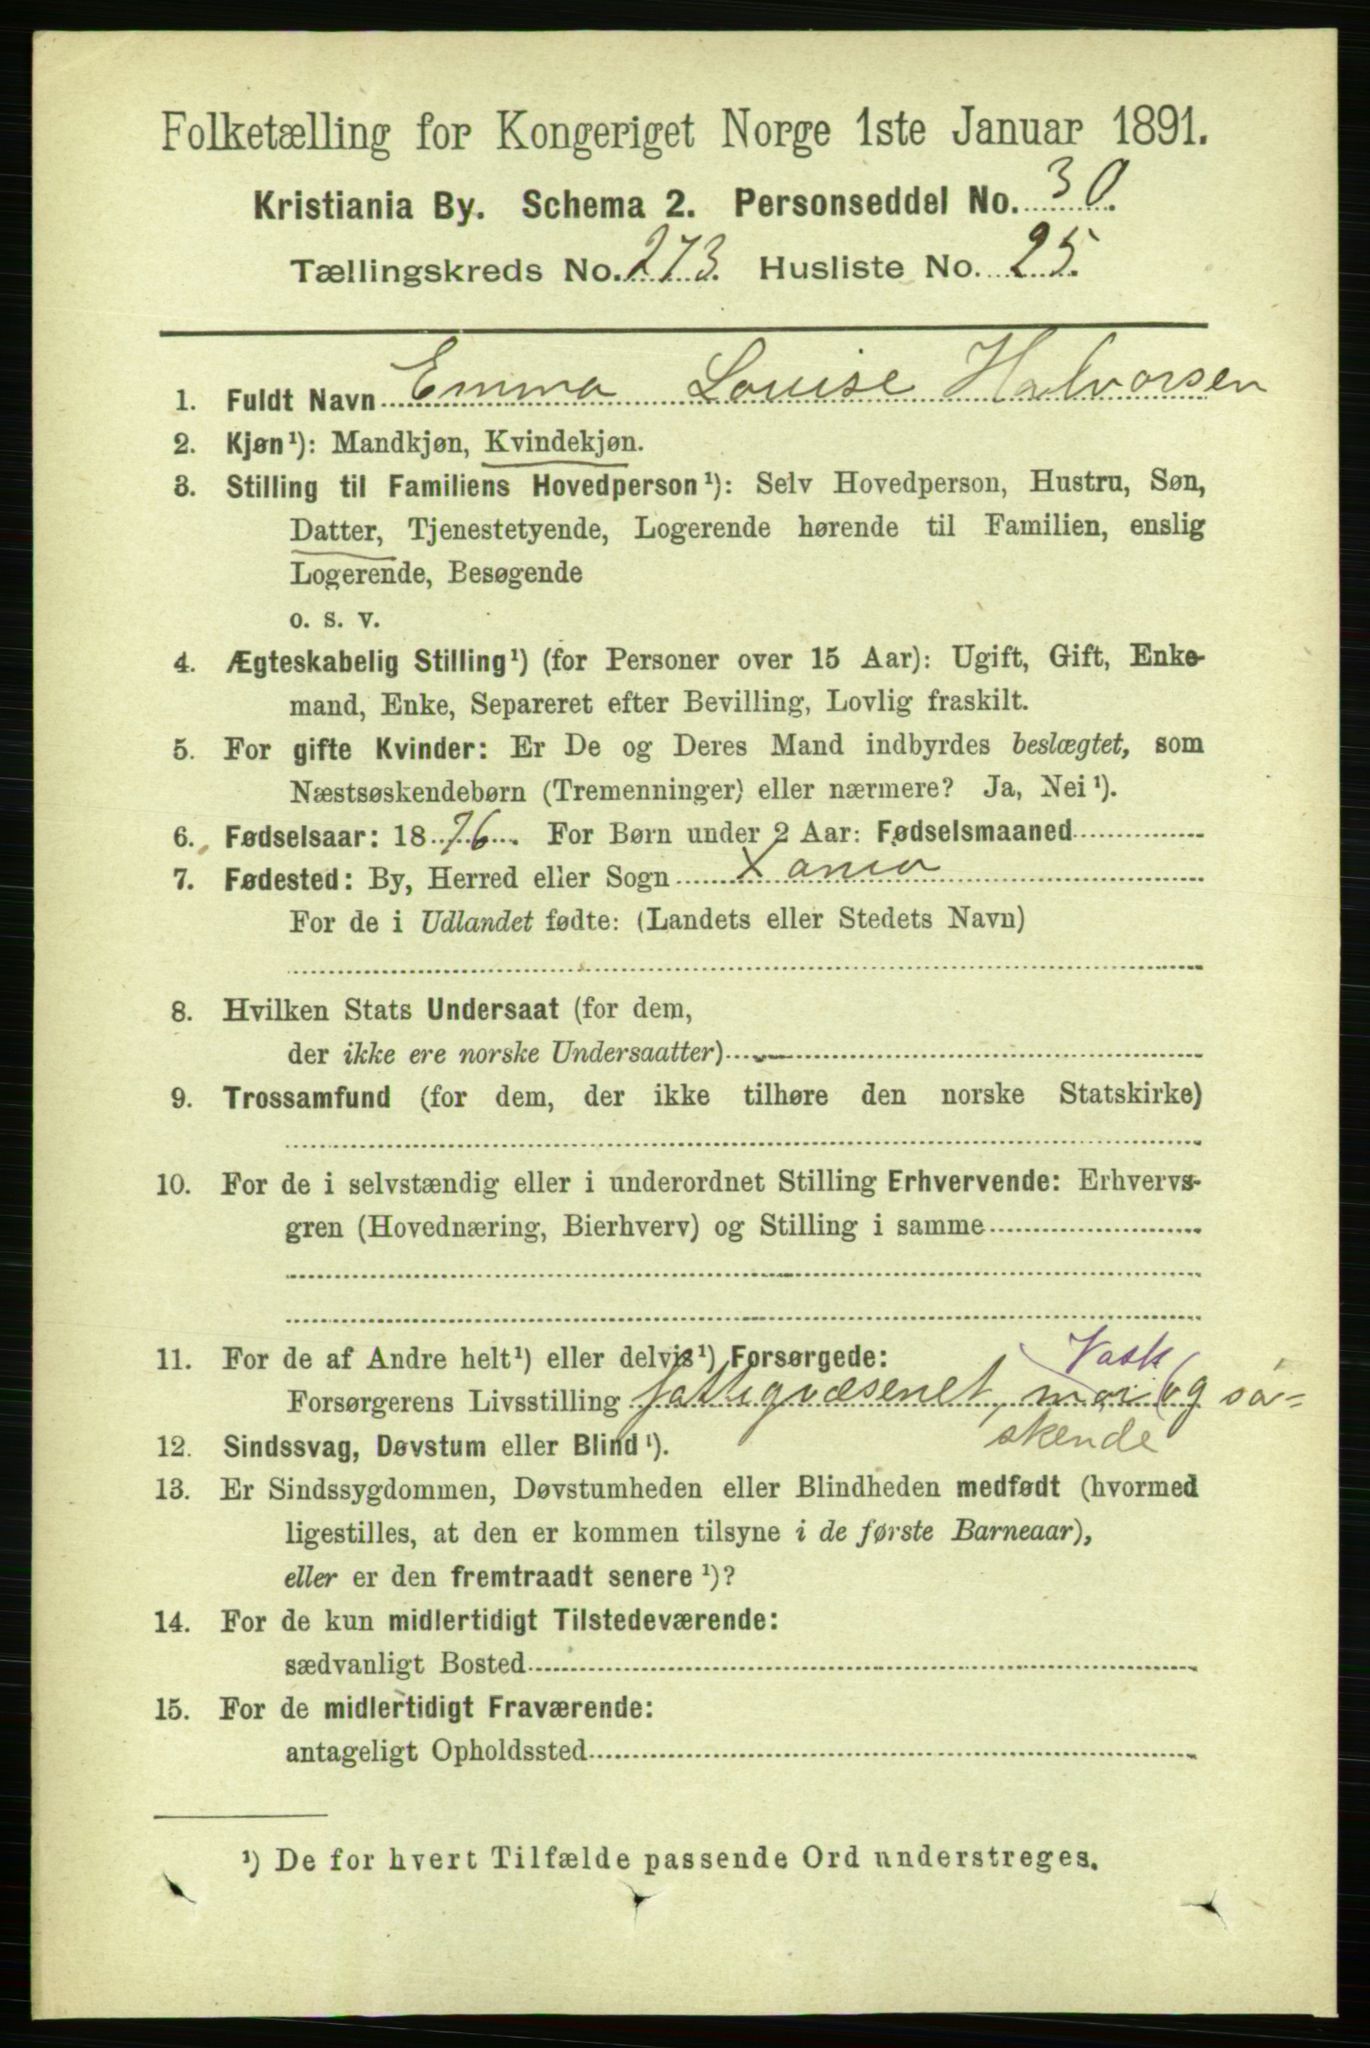 Folketælling for Kongeriget Norge 1ste Januar 1891.
Kristiania By. Schema 2. Personseddel No. 30.
Tællingskreds No. 273. Husliste No. 25.
1. Fuldt Navn Emma Louise Halvorsen
2. Kjøn¹): Mandkjøn, Kvindekjøn.
3. Stilling til Familiens Hovedperson¹): Selv Hovedperson, Hustru, Søn,
Datter, Tjenestetyende, Logerende hørende til Familien, enslig
Logerende, Besøgende
o. s. v.
4. Ægteskabelig Stilling¹) (for Personer over 15 Aar): Ugift, Gift, Enke-
mand, Enke, Separeret efter Bevilling, Lovlig fraskilt.
5. For gifte Kvinder: Er De og Deres Mand indbyrdes beslægtet, som
Næstsøskendebørn (Tremenninger) eller nærmere? Ja, Nei¹).
6. Fødselsaar: 1876. For Børn under 2 Aar: Fødselsmaaned
7. Fødested: By, Herred eller Sogn Xania
For de i Udlandet fødte: (Landets eller Stedets Navn)
8. Hvilken Stats Undersaat (for dem,
der ikke ere norske Undersaatter)
9. Trossamfund (for dem, der ikke tilhøre den norske Statskirke)
10. For de i selvstændig eller i underordnet Stilling Erhvervende: Erhvervs-
gren (Hovednæring, Bierhverv) og Stilling i samme
11. For de af Andre helt¹) eller delvis¹) Forsørgede:
Vask
Forsørgerens Livsstilling fattigvæsenet, mor og sø-
skende
12. Sindssvag, Døvstum eller Blind¹).
13. Er Sindssygdommen, Døvstumheden eller Blindheden medfødt (hvormed
ligestilles, at den er kommen tilsyne i de første Barneaar),
eller er den fremtraadt senere¹)?
14. For de kun midlertidigt Tilstedeværende:
sædvanligt Bosted
15. For de midlertidigt Fraværende:
antageligt Opholdssted
¹) De for hvert Tilfælde passende Ord understreges.